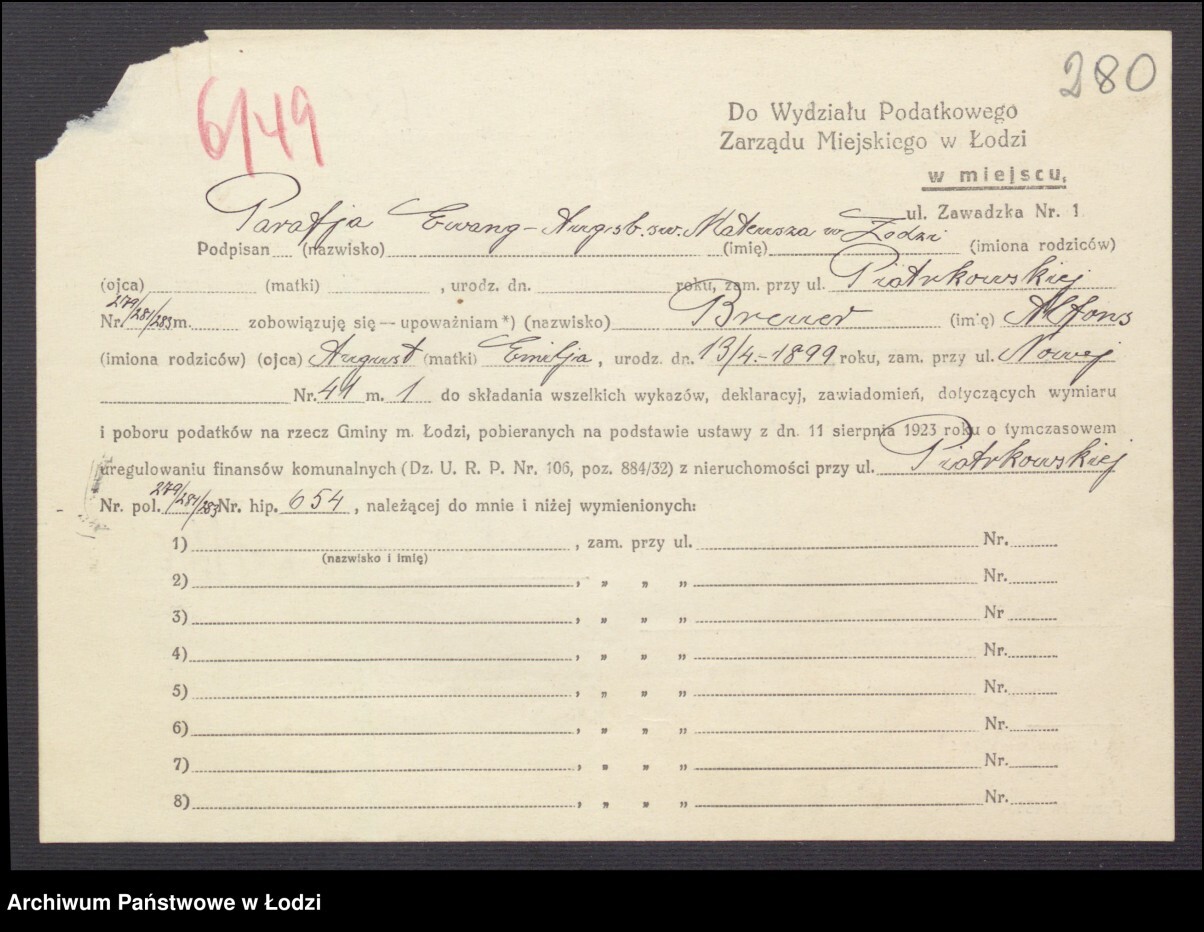 280
6/49
Do Wydziału Podatkowego
Zarządu Miejskiego w Łodzi
w miejscu,
ul. Zawadzka Nr. 1
Parafja Ewang-Augsb. św. Mateusza w Łodzi
Podpisan (nazwisko) (imię) (imiona rodziców)
(ojca) (matki) , urodz. dn. roku, zam. przy ul. Piotrkowskiej
Nr. 279/281/283 m. zobowiązuję się — upoważniam *) (nazwisko) Breuer (im'ę) Alfons
(imiona rodziców) (ojca) August (matki) Emilja , urodz. dn. 13/4.-1899 roku, zam. przy ul. Nowej
Nr. 41 m. 1 do składania wszelkich wykazów, deklaracyj, zawiadomień, dotyczących wymiaru
i poboru podatków na rzecz Gminy m. Łodzi, pobieranych na podstawie ustawy z dn. 11 sierpnia 1923 roku o tymczasowem
uregulowaniu finansów komunalnych (Dz. U. R. P. Nr. 106, poz. 884/32) z nieruchomości przy ul. Piotrkowskiej
Nr. pol. 279/281/283 Nr. hip. 654 , należącej do mnie i niżej wymienionych:
1) , zam. przy ul. Nr.
(nazwisko i imię)
2) , „ „ „ Nr.
3) , „ „ „ Nr
4) , „ „ „ Nr.
5) , „ „ „ Nr.
6) , „ „ „ Nr.
7) , „ „ „ Nr.
8) , „ „ „ Nr.
Archiwum Państwowe w Łodzi